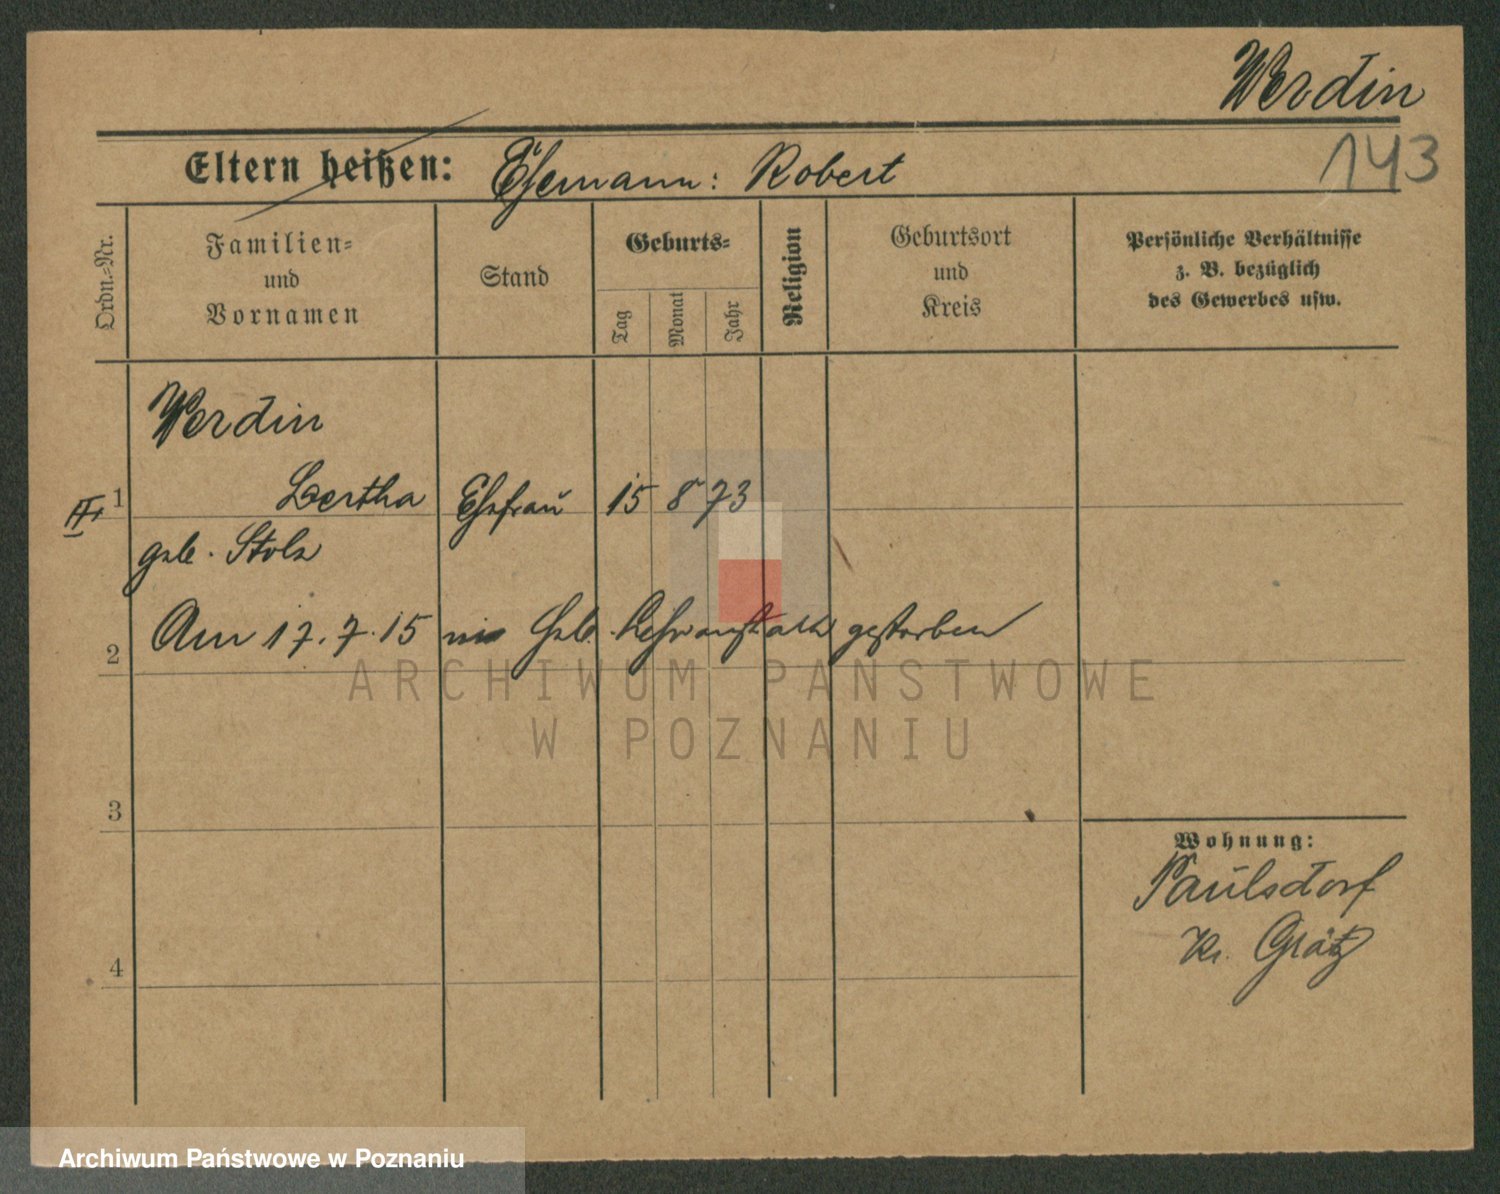 Werdin
143
Eltern heißen: Ehemann: Robert
Ordn.=Nr.
Familien=
und
Vornamen
Stand
Geburts=
Tag
Monat
Jahr
Religion
Geburtsort
und
Kreis
Persönliche Verhältnisse
z. B. bezüglich
des Gewerbes usw.
Werdin
1 Bertha Ehefrau 15 8 73
geb. Stolz
2 Am 17.7.15 Heb. Lehranstalt gestorben
3
4
Wohnung:
Paulsdorf
Kr. Grätz
ARCHIWUM PAŃSTWOWE
W POZNANIU
Archiwum Państwowe w Poznaniu